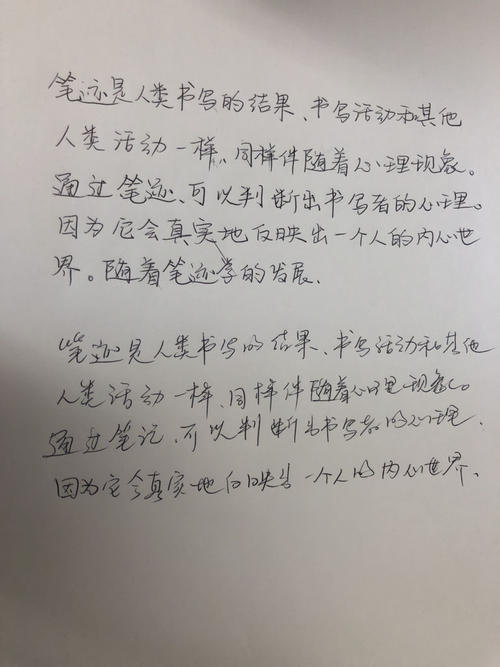 笔迹是人类书写的结果、书写活动和其他
人类活动一样,同样伴随着心理现象。
通过笔迹、可以判断出书写者的心理。
因为它会真实地反映出一个人的内心世
界。随着笔迹学的发展、
笔迹是人类书写的结果、书写活动和其他
人类活动一样、同样伴随着心理现象。
通过笔记、可以判断出书写者的心理、
因为它会真实地反映出一个人的内心世界、